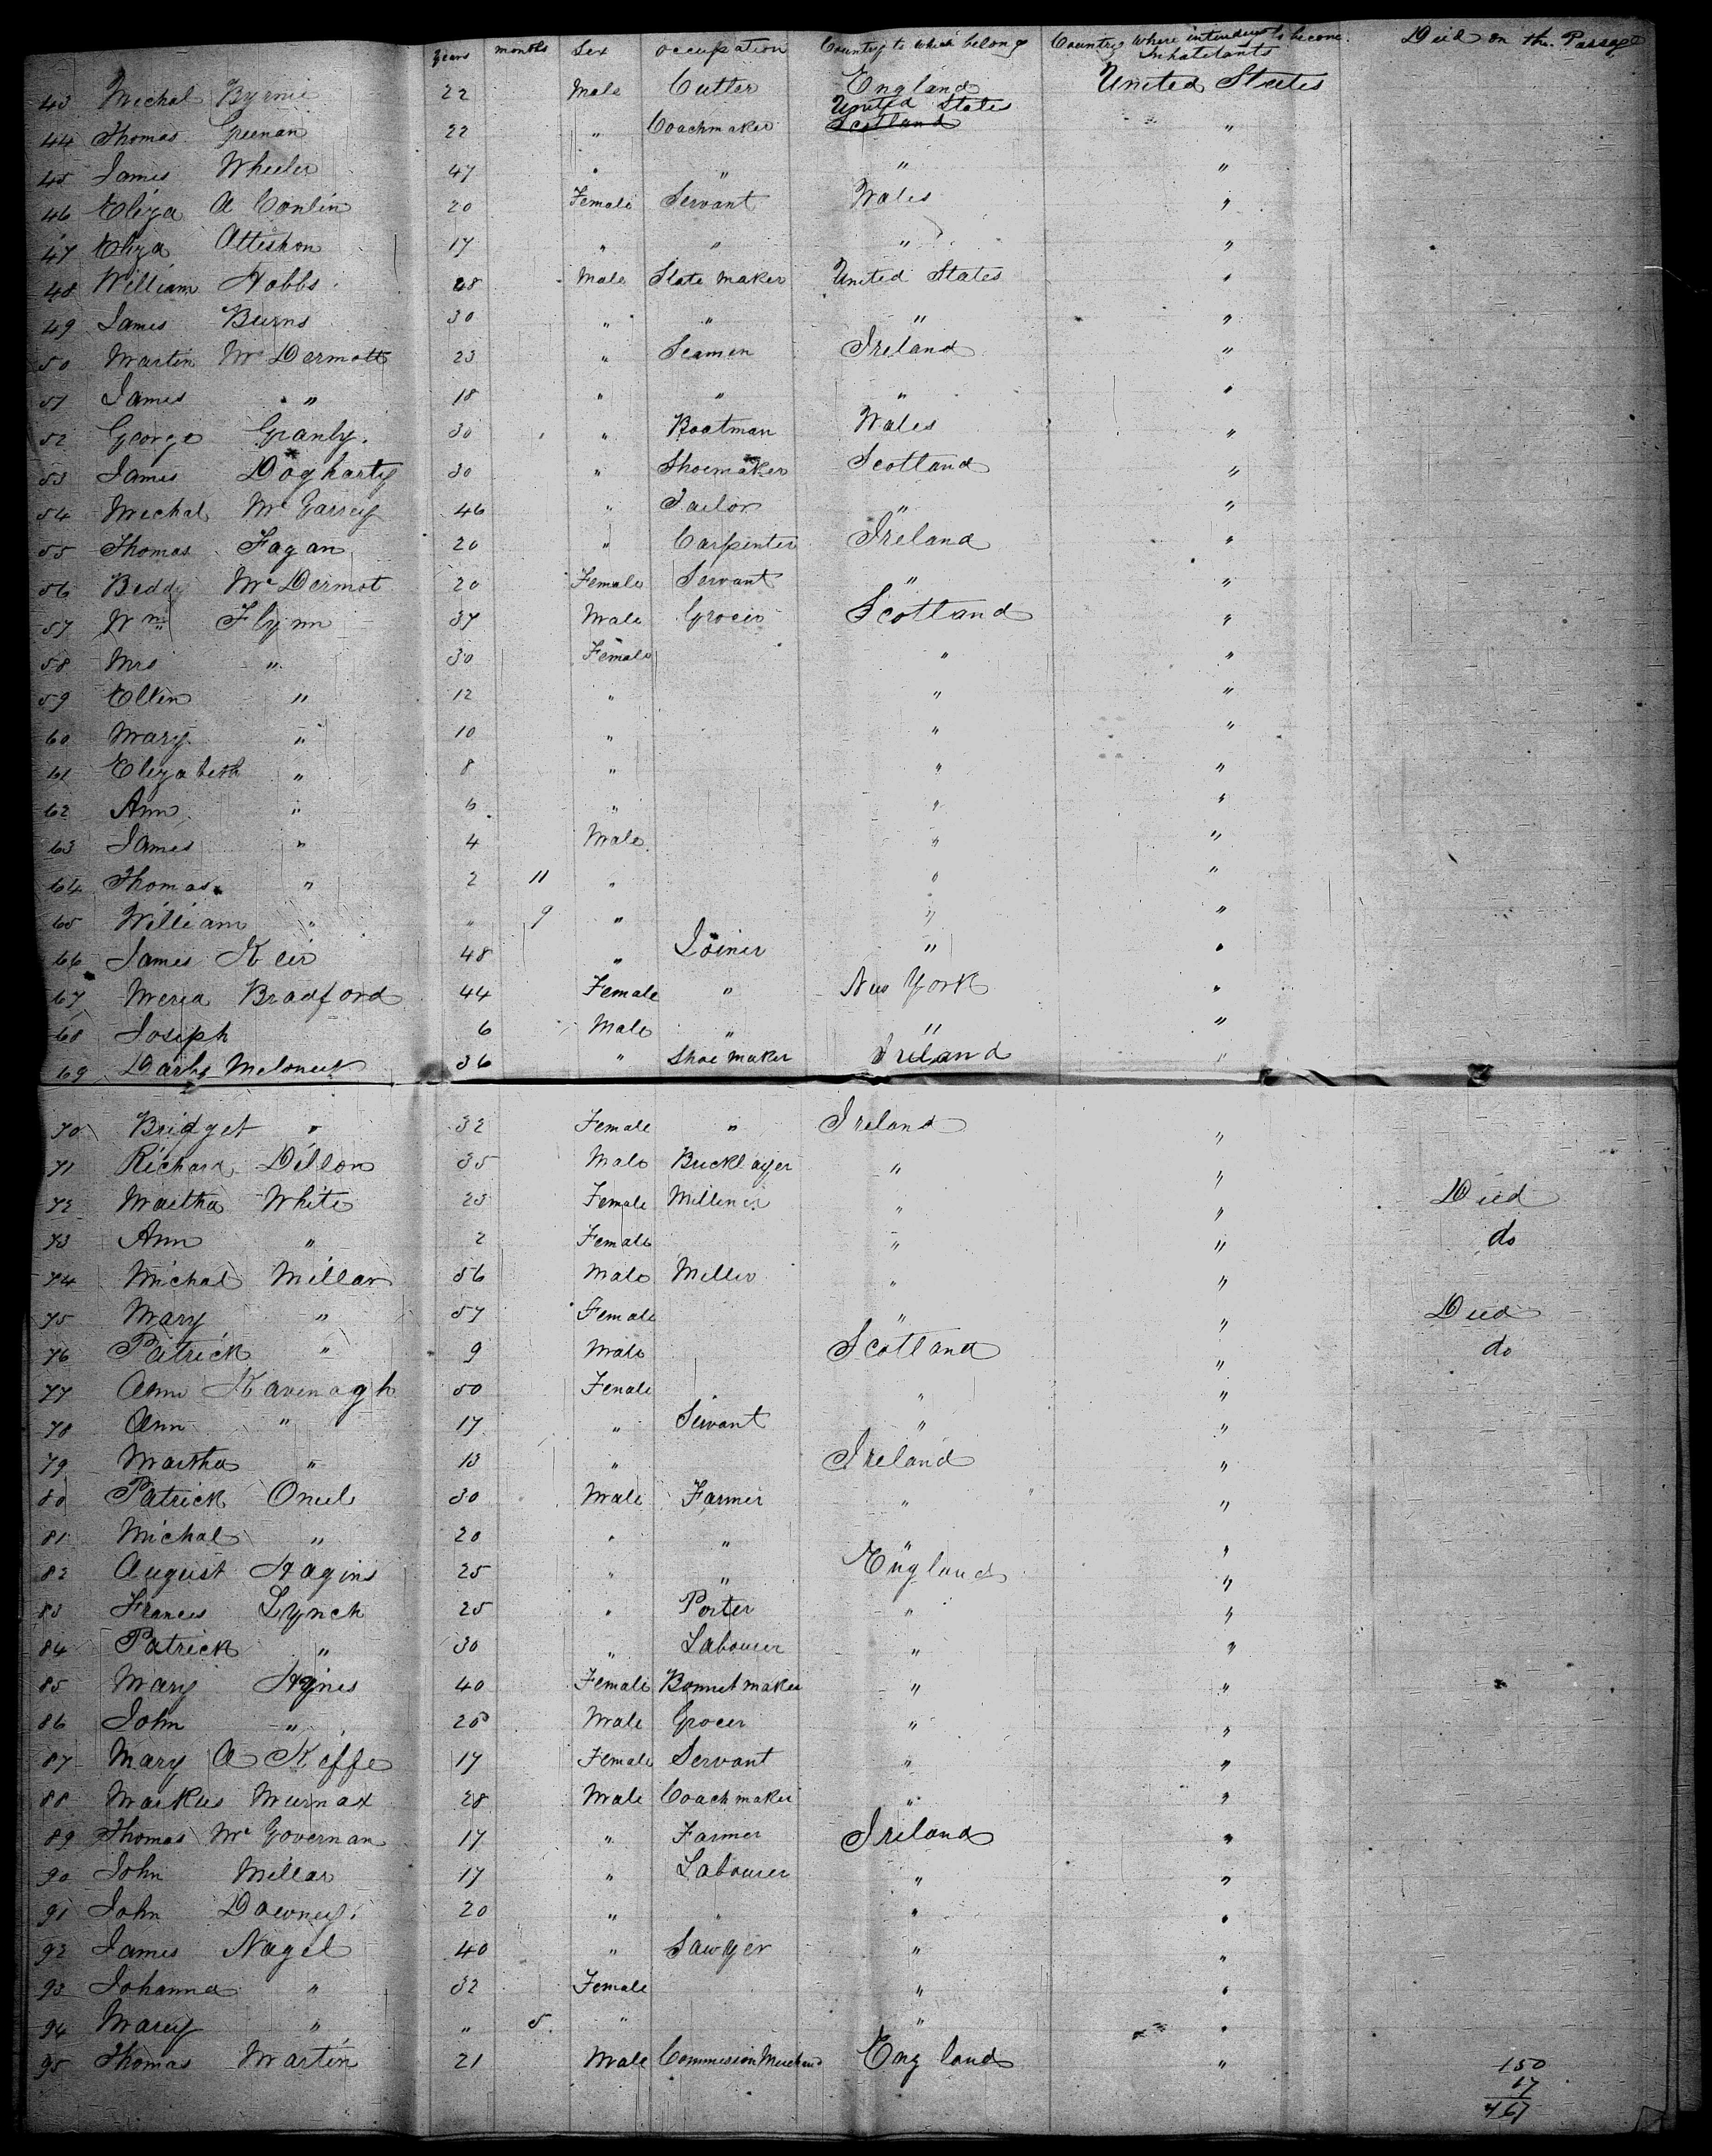 Years months Sex occupation Country to which belong Country where intending to become Inhabitants Died on the Passage
43 Michal Byrnie 22 Male Cutler England United States
44 Thomas Greenan 22 " Coachmaker United States Scotland "
45 James Wheeler 47 " " " "
46 Eliza A Conlin 20 Female Servant Wales "
47 Eliza Atteshon 17 " " " "
48 William Hobbs 28 Male Slate maker United States "
49 James Burns 30 " " " "
50 Martin McDermott 23 " Seamen Ireland "
51 James " 18 " " " "
52 George Granby. 30 " Boatman Wales "
53 James Dogharty 30 " Shoemaker Scotland "
54 Michal McGarrey 46 " Tailor " "
55 Thomas Fagan 20 " Carpenter Ireland "
56 Beddy McDermot 20 Female Servant " "
57 Wm Flynn 37 Male Grocer Scotland "
58 Mrs " 30 Female " "
59 Ellen " 12 " " "
60 Mary " 10 " " "
61 Elizabeth " 8 " " "
62 Ann " 6 " " "
63 James " 4 Male " "
64 Thomas " 2 11 " " "
65 William " " 9 " " "
66 James Keir 48 " Joiner " "
67 Meria Bradford 44 Female " New York "
68 Joseph 6 Male " " "
69 Darby Meloneet 36 " Shoe maker Ireland "
70 Bridget " 32 Female " Ireland "
71 Richard Dillon 35 Male Bricklayer " "
72 Martha White 23 Female Milliner " " Died
73 Ann " 2 Female " " do
74 Michal Millar 56 Male Miller " "
75 Mary " 57 Female " " Died
76 Patrick " 9 Male Scotland " do
77 Ann Kavenagh 50 Female " "
78 Ann " 17 " Servant " "
79 Martha " 13 " Ireland "
80 Patrick Oneil 30 Male Farmer " "
81 Michal " 20 " " " "
82 August Hagins 25 " " England "
83 Frances Lynch 25 " Porter " "
84 Patrick " 30 " Labourer " "
85 Mary Hynes 40 Female Bonnet maker " "
86 John " 20 Male Grocer " "
87 Mary A Keffe 17 Female Servant " "
88 Markus Murnax 28 Male Coachmaker " "
89 Thomas McGovernan 17 " Farmer Ireland "
90 John Millar 17 " Labourer " "
91 John Downey. 20 " " " "
92 James Nagel 40 " Sawyer " "
93 Johanna " 32 Female " "
94 Marey " " 5 " " "
95 Thomas Martin 21 Male Commission Merchand England "
150
17
167